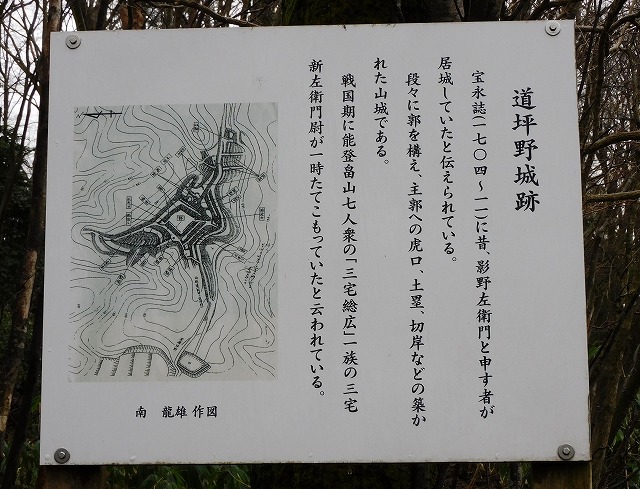 道坪野城跡
宝永誌(一七〇四～一一)に昔、影野左衛門と申す者が
居城していたと伝えられている。
段々に郭を構え、主郭への虎口、土塁、切岸などの築か
れた山城である。
戦国期に能登畠山七人衆の「三宅総広」一族の三宅
新左衛門尉が一時たてこもっていたと云われている。
南 龍雄 作図